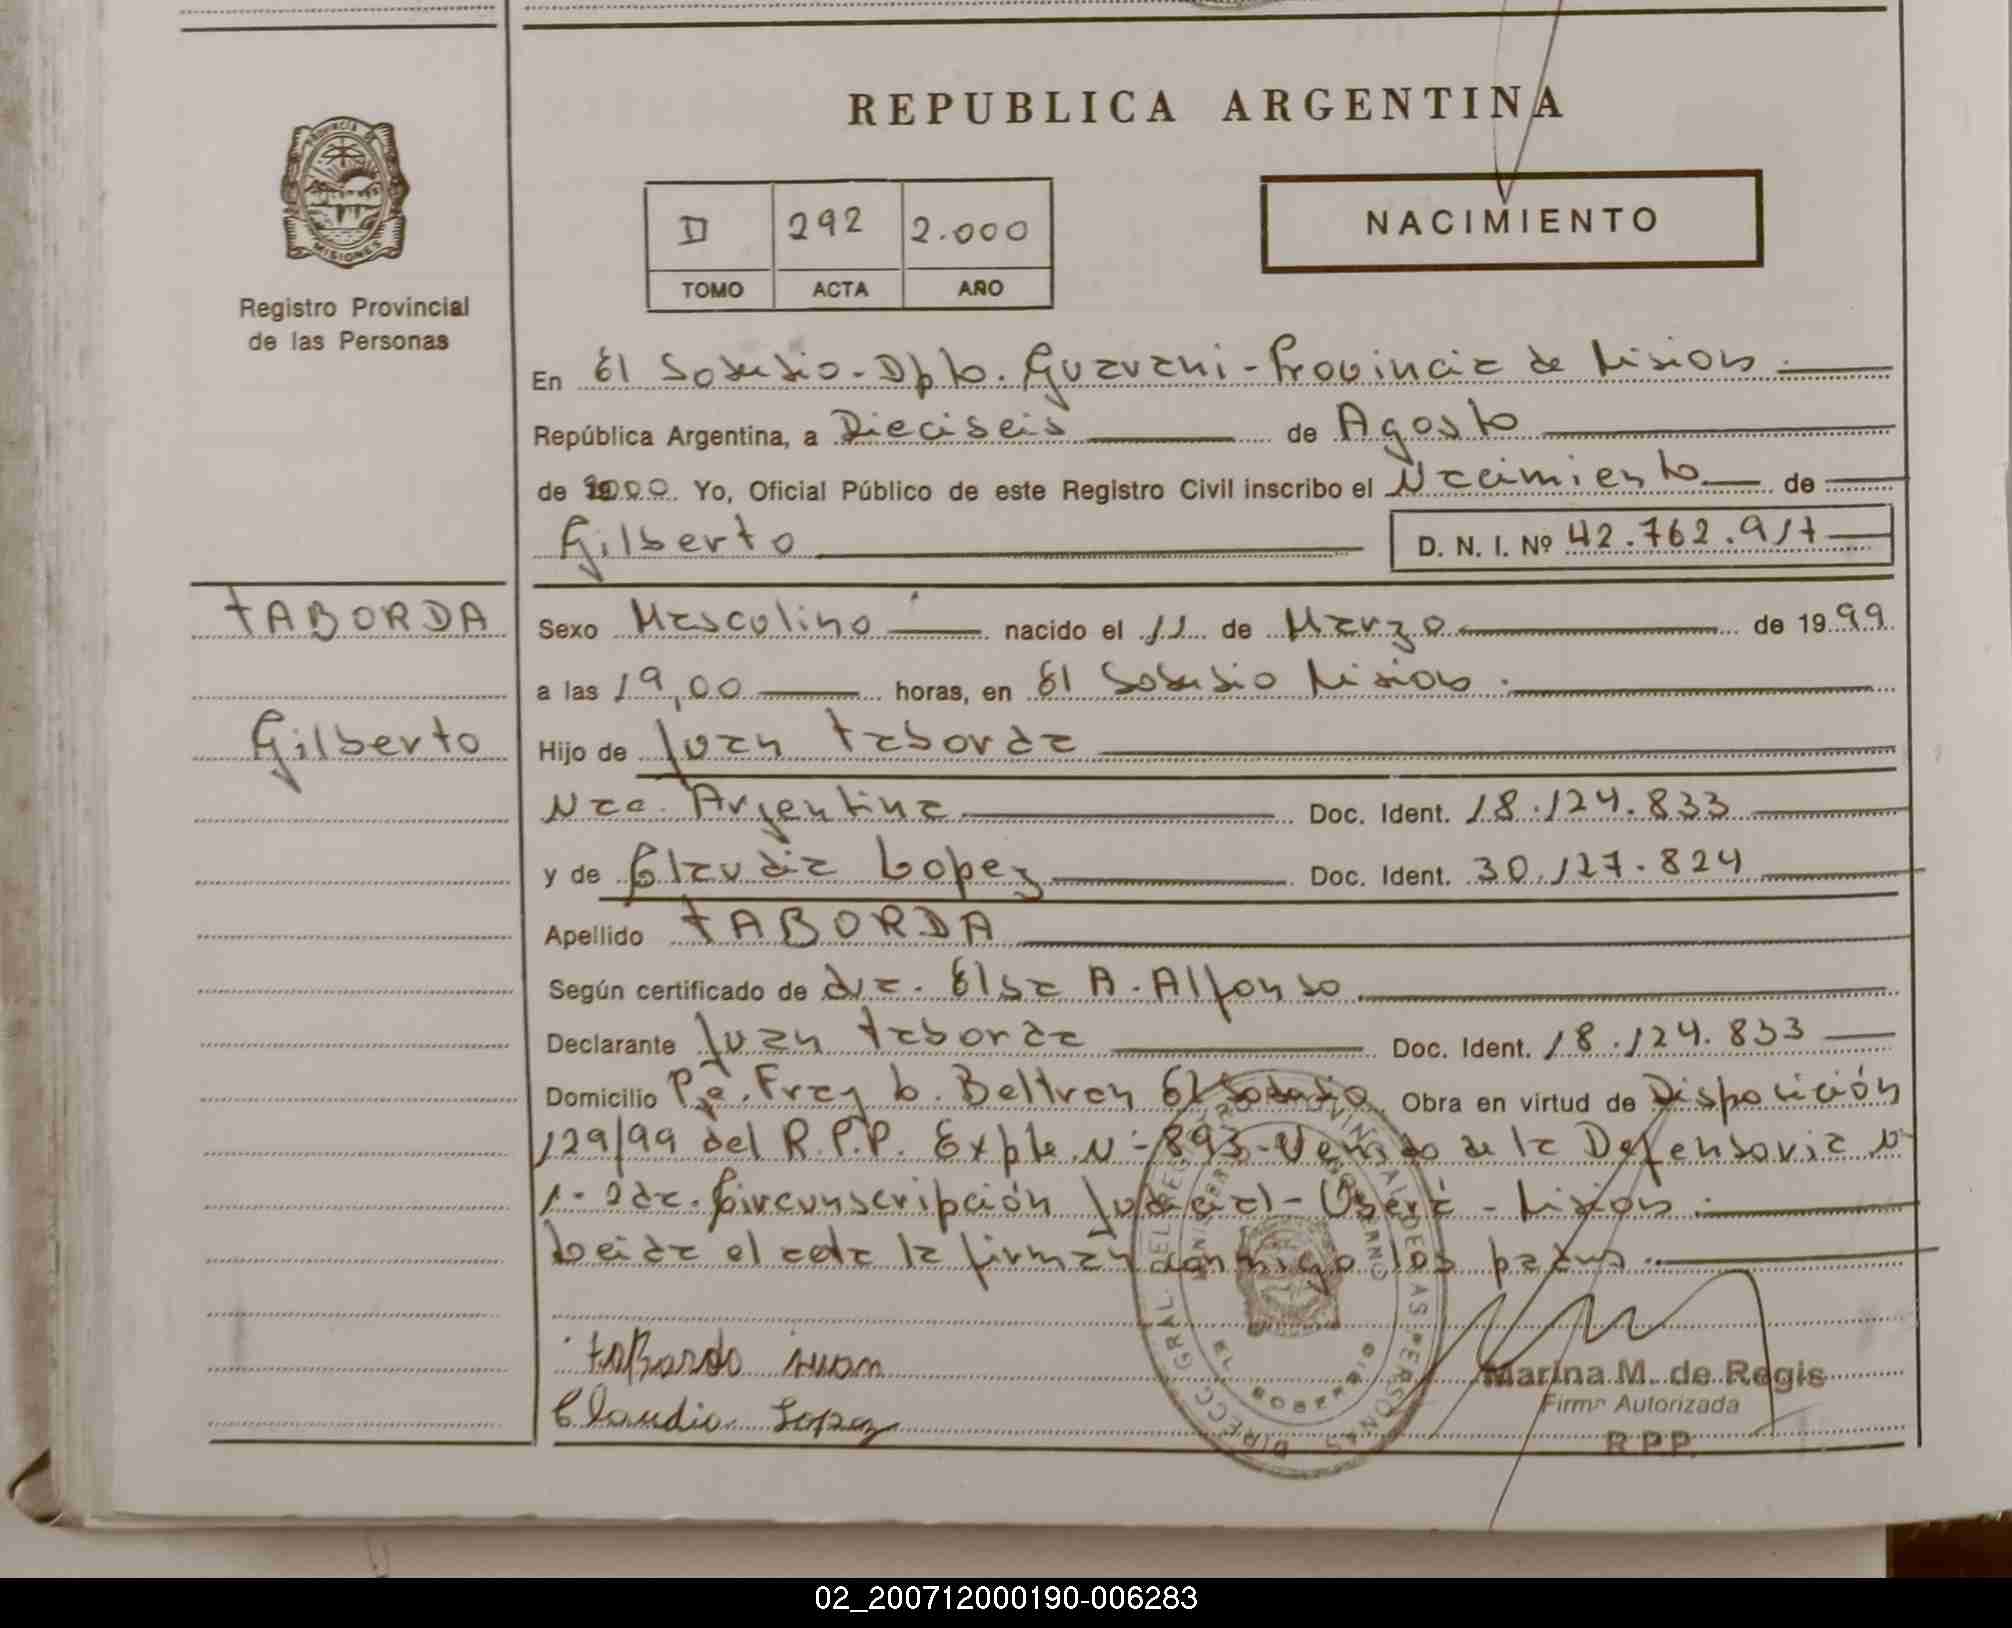 REPUBLICA ARGENTINA
PROVINCIA DE
MISIONES
Registro Provincial
de las Personas
D 292 2.000
TOMO ACTA AÑO
NACIMIENTO
En El Soberbio - Dpto. Guarani - Provincia de Misiones.
República Argentina, a Dieciseis de Agosto
de 2000. Yo, Oficial Público de este Registro Civil inscribo el Nacimiento de
Gilberto D. N. I. Nº 42.762.917
TABORDA
Sexo Masculino nacido el 11 de Marzo de 1999
a las 19,00 horas, en El Soberbio Misiones.
Gilberto
Hijo de Juan Taborda
Nac. Argentina Doc. Ident. 18.124.833
y de Claudia Lopez Doc. Ident. 30.127.824
Apellido TABORDA
Según certificado de dra. Elsa A. Alfonso
Declarante Juan Taborda Doc. Ident. 18.124.833
Domicilio Pje. Fray L. Beltran El Soberbio. Obra en virtud de Disposición
129/99 del R.P.P. Expte. N- 893- Venido de la Defensoria N-
1- 2da. Circunscripción Judicial - Oberá - Misiones.
Leida el acta la firman conmigo los padres.
Taborda Juan
Claudia Lopez
EL SOBERBIO
Marina M. de Regis
Firma Autorizada
R.P.P.
02_200712000190-006283